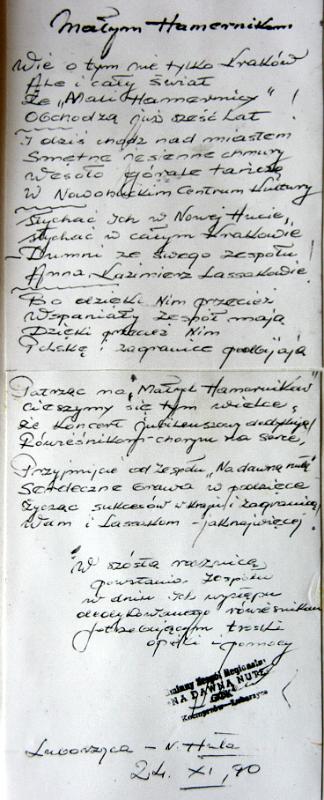 Małym Hamernikom
Wie o tym nie tylko Kraków
Ale i cały świat
Że „Mali Hamernicy"
Obchodzą już sześć lat!
I dziś choć nad miastem
Smętne jesienne chmury
Wesoło górale tańczą
W Nowohuckim Centrum Kultury
Słychać Ich w Nowej Hucie,
słychać w całym Krakowie
Dumni ze swego zespołu
Anna, Kazimierz Lassakowie.
Bo dzięki Nim przecież
Wspaniały zespół mają
Dzięki przecież Nim
Polskę i zagranicę podbijają
Patrząc na „Małych Hamerników"
cieszymy się tym wielce,
że koncert jubileuszowy dedykują
Rówieśnikom - chorym na serce,
Przyjmijcie od zespołu „Na dawną nutę"
Serdeczne brawa w podzięce
Życząc sukcesów w kraju i zagranicą
Wam i Lassakom - jak najwięcej!
W szóstą rocznicę
powstania zespołu
w dniu Ich występu
dedykowanego rówieśnikom
potrzebującym troski
opieki i pomocy
Zespół Regionalny
„NA DAWNĄ NUTĘ"
Luborzyca - N. Huta
24. XI. 90